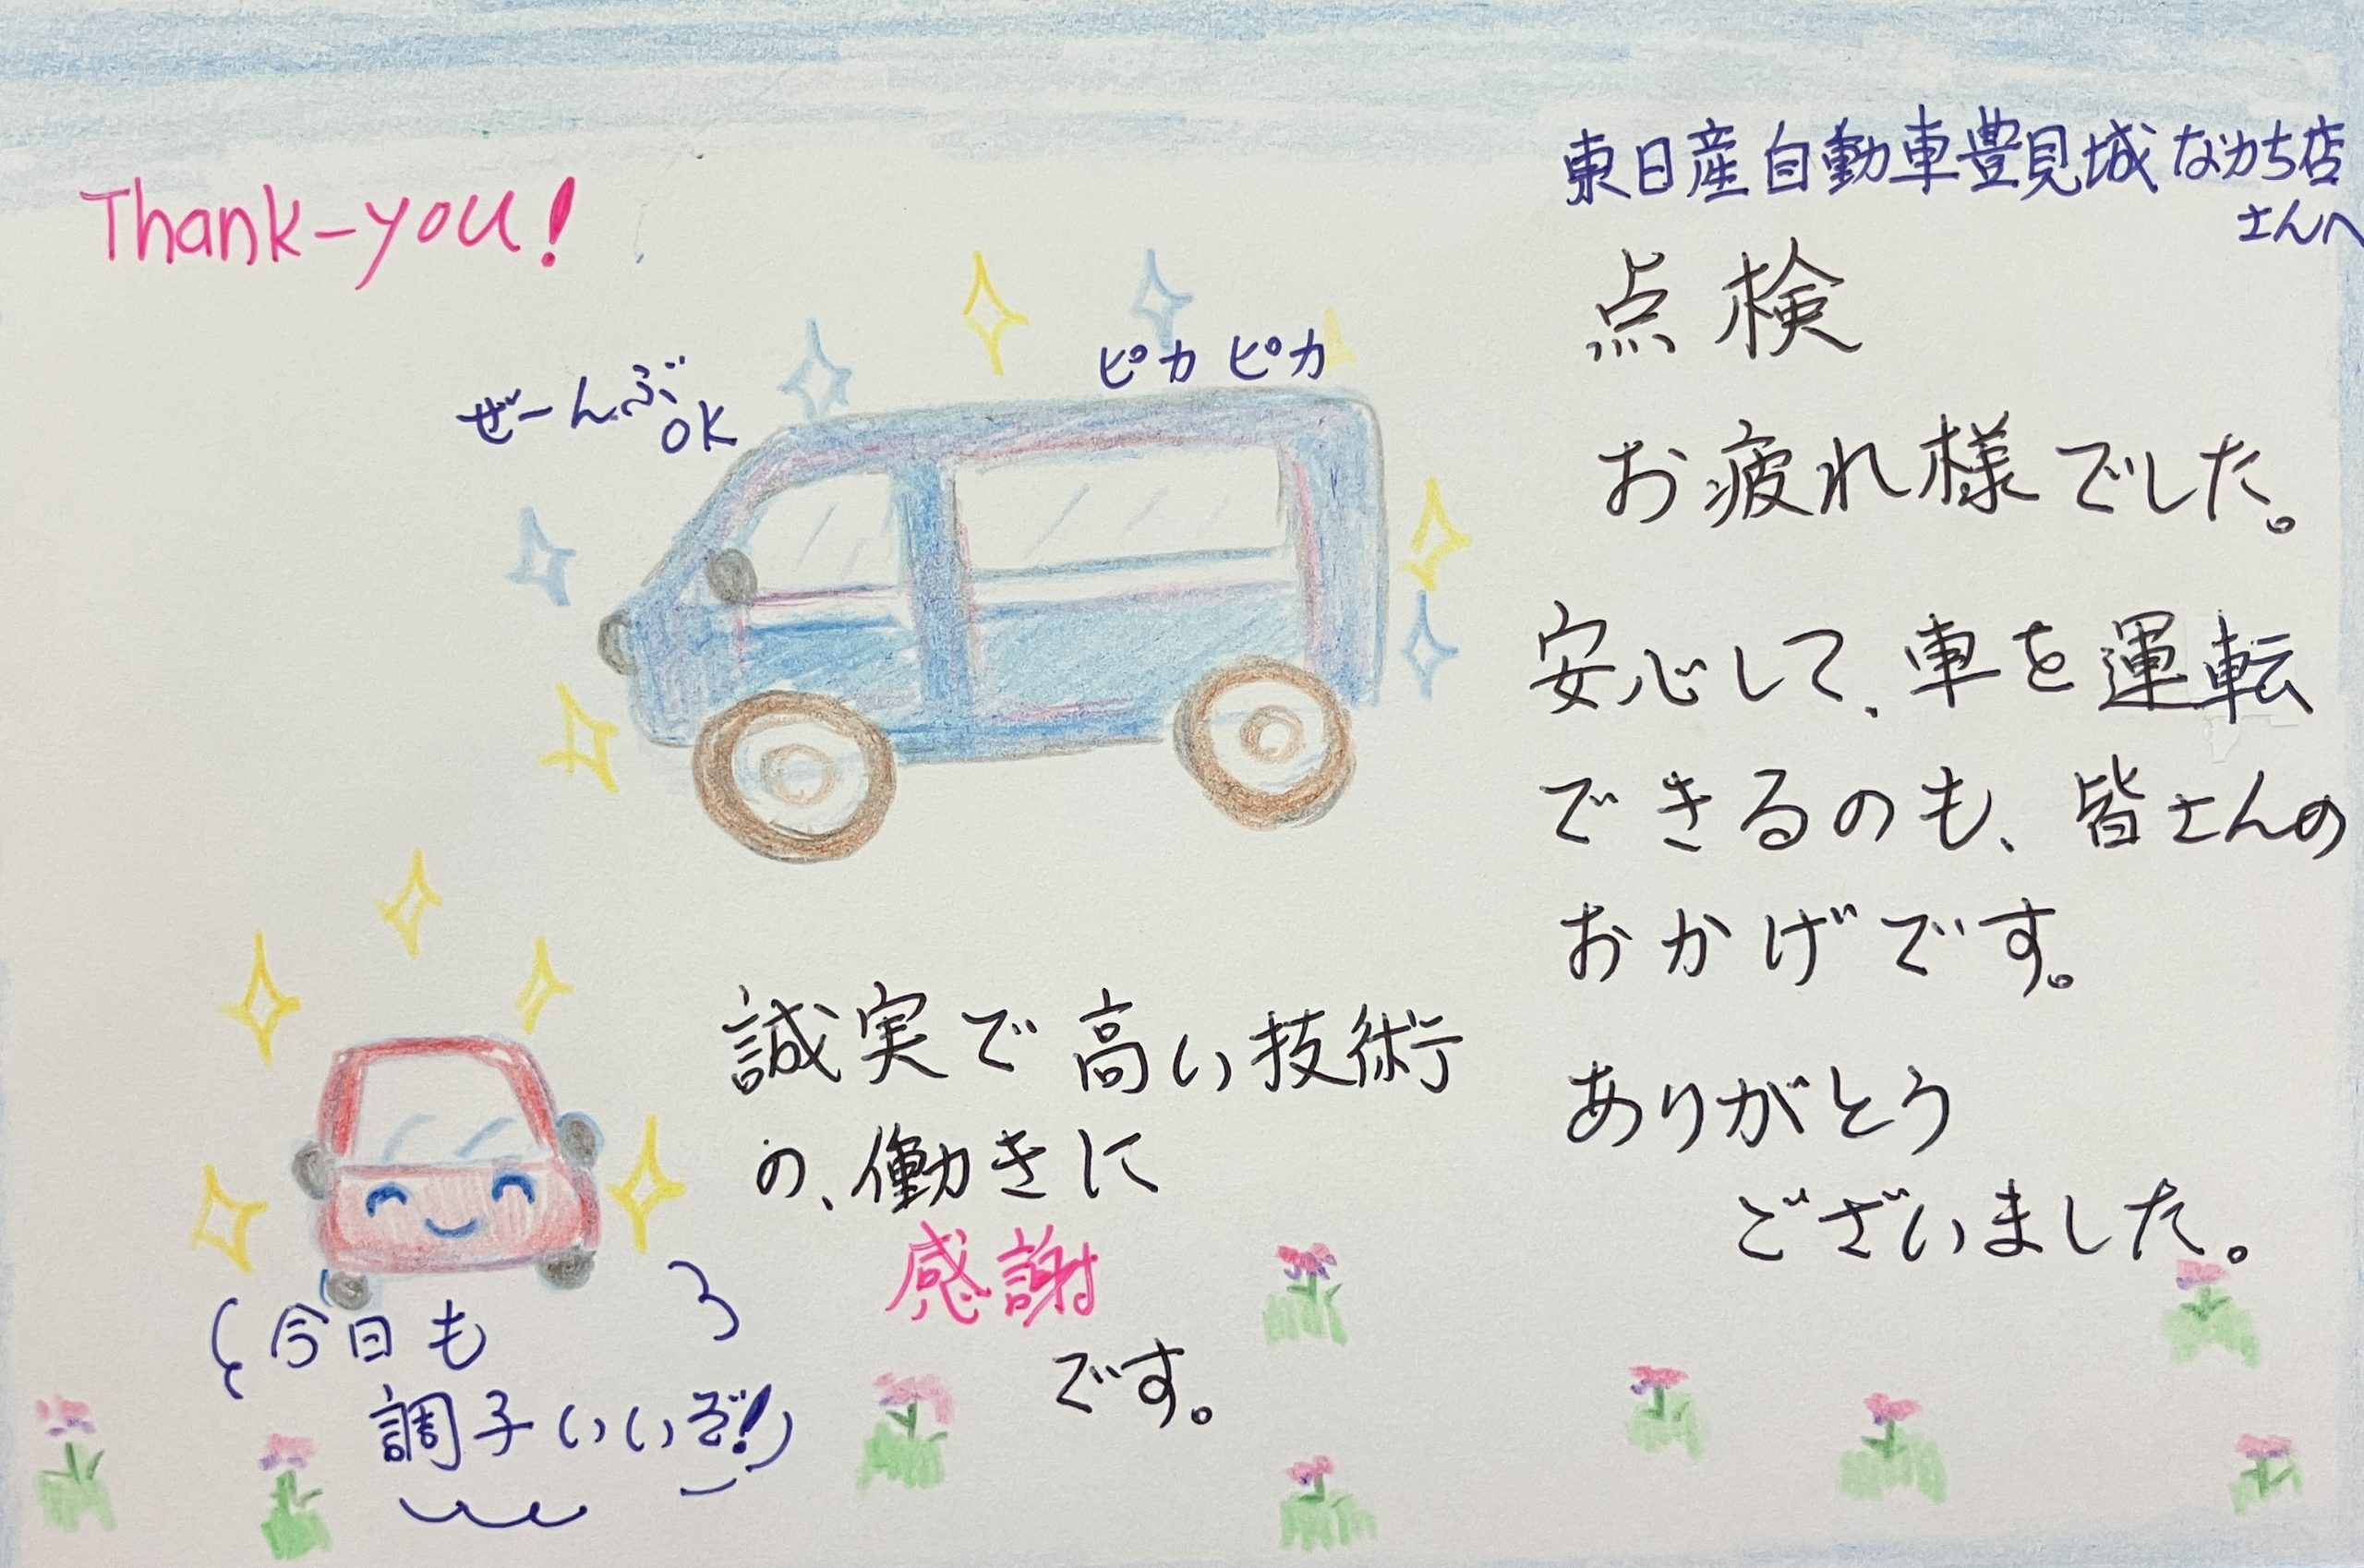 Thank-you!
東日産自動車豊見城なかち店
さんへ
点検
お疲れ様でした。
安心して、車を運転
できるのも、皆さんの
おかげです。
ありがとう
ございました。
ぜーんぶ
OK
ピカピカ
誠実で高い技術
の、働きに
感謝
です。
今日も
調子いいぞ!